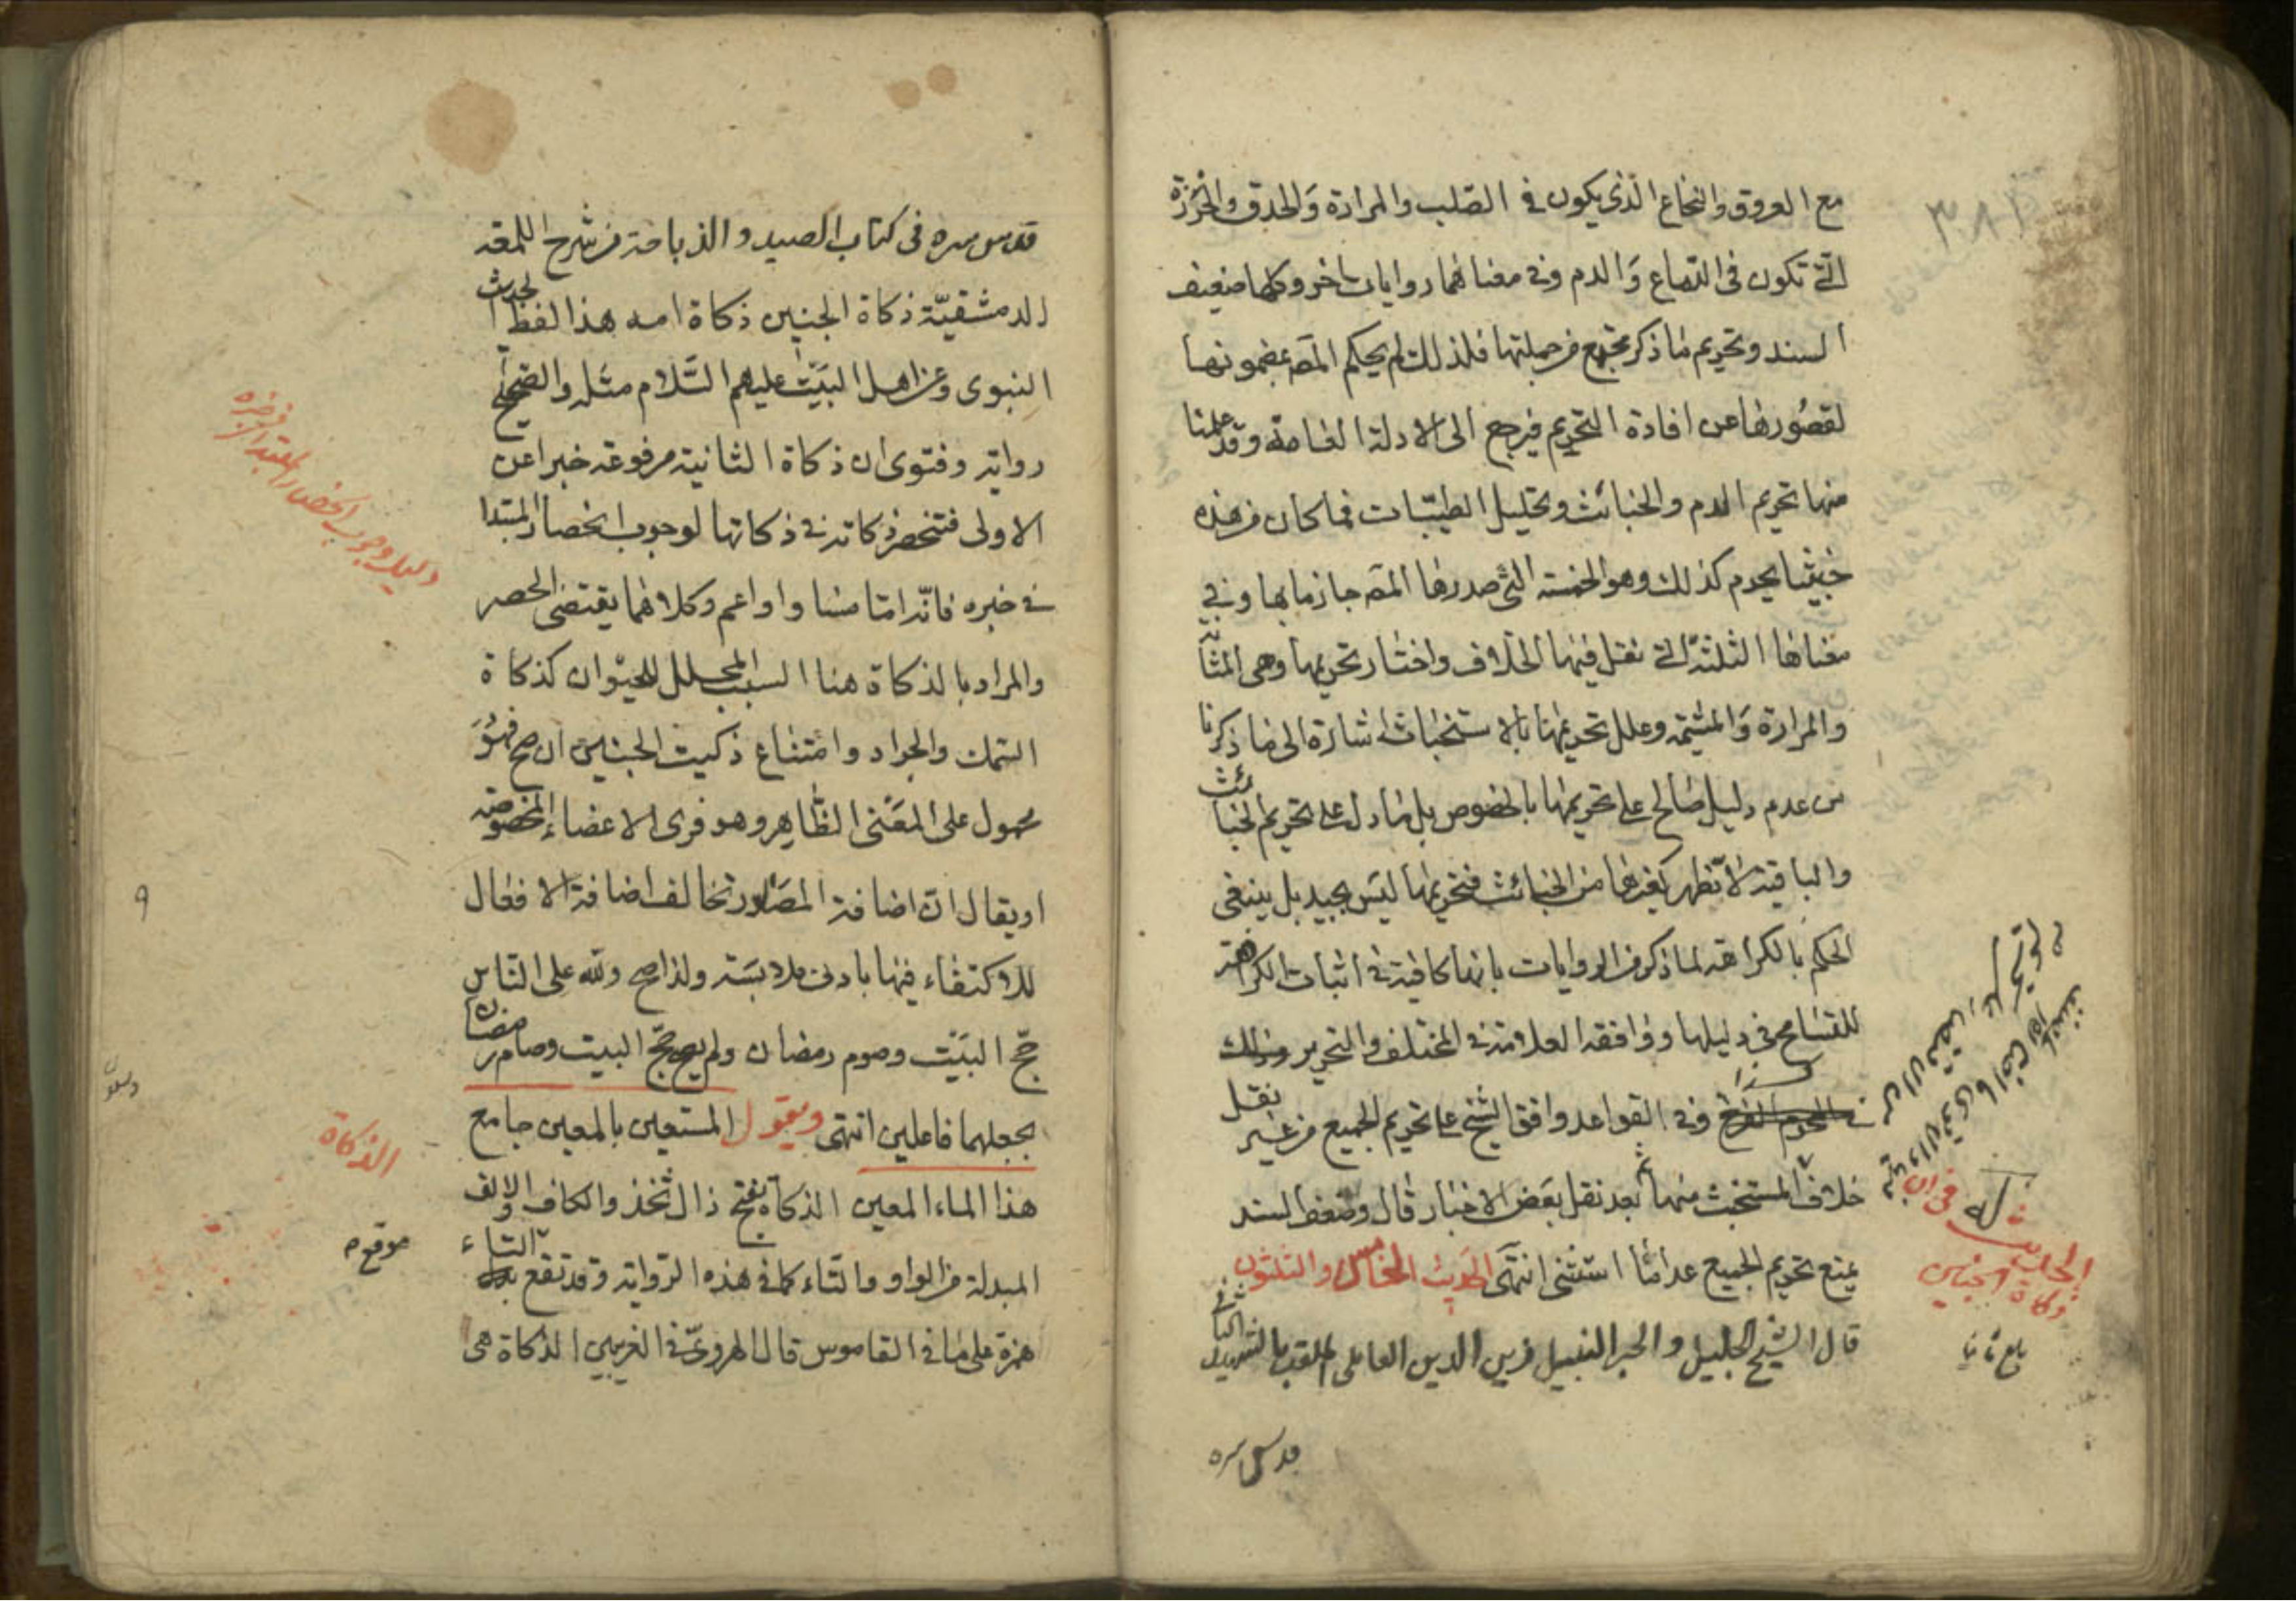 مع العروق والنخاع الذى يكون فى الصلب والمرارة والحدق والخرزة
التى تكون فى الدماغ والدم وفى معناهما روايات اخر وكلها ضعيف
السند وتحريم ما ذكر مجتمع من جملتها فلذلك لم يحكم المصـ بمضمونها
لقصورها عن افادة التحريم فيرجع الى الادلة العامة وقد علمنا
منها تحريم الدم والخبائث وتحليل الطيبات فما كان من هذه
خبيثا يحرم كذلك وهو الخمسة التى صدرها المصـ جازما بها وفى
معناها الثلثة التى نقل فيها الخلاف واختار تحريمها وهى المثانه
والمرارة والمشيمة وعلل تحريمها بالاستخباث اشارة الى ما ذكرنا
من عدم دليل صالح على تحريمها بالخصوص بل بما دل على تحريم الخبائث
والباقية لا تظهر كغيرها من الخبائث فتحريمها ليس بجيد بل ينبغى
الحكم بالكراهة لما ذكر من الروايات بانها كافية فى اثبات الكراهة
للتسامح فى دليلها ووافقه العلامة فى المختلف والتحرير
وفى القواعد وافق الشيخ على تحريم الجميع من غير نقل
خلاف المستخبث منها ثم بعد نقل بعض الاخبار قال وضعف السند
يمنع تحريم الجميع عدا ما استثنى انتهى الحديث الخامس والثلثون
قال الشيخ الجليل والحبر النبيل زين الدين العاملى الملقب بالشهيد الثانى
قدس سره
٣٨١
الحديث
ذكاة الجنين
قدس سره فى كتاب الصيد والذباحة من شرح اللمعة
الدمشقية ذكاة الجنين ذكاة امه هذا لفظ الحديث
النبوى وعن اهل البيت عليهم السلام مثله والصحيح
رواية وفتوى ان ذكاة الثانية مرفوعة خبرا عن
الاولى فتنحصر ذكاته فى ذكاتها لوجوب انحصار المبتدا
فى خبره فانه اما مساو او اعم وكلاهما يقتضى الحصر
والمراد بالذكاة هنا السبب المحلل للحيوان كذكاة
السمك والجراد وامتناع ذكيت الجنين ان صح فهو
محمول على المعنى الظاهر وهو فرى الاعضاء المخصوصة
او يقال ان اضافة المصادر تخالف اضافة الافعال
للاكتفاء فيها بادنى ملابسة ولذا صح ولله على الناس
حج البيت وصوم رمضان ولم يصح حج البيت وصام رمضان
بجعلهما فاعلين انتهى ويقول المستعين بالمعين جامع
هذا الماء المعين الذكاة بفتح ذال ثخذ والكاف والالف
المبدلة من الواو والتاء كما فى هذه الرواية وقد تقع التاء
همزة على ما فى القاموس قال الهروى فى الغريبين الذكاة هى
دليل وجوب انحصار المبتدا فى خبره
٩
الذكاة
موقع م